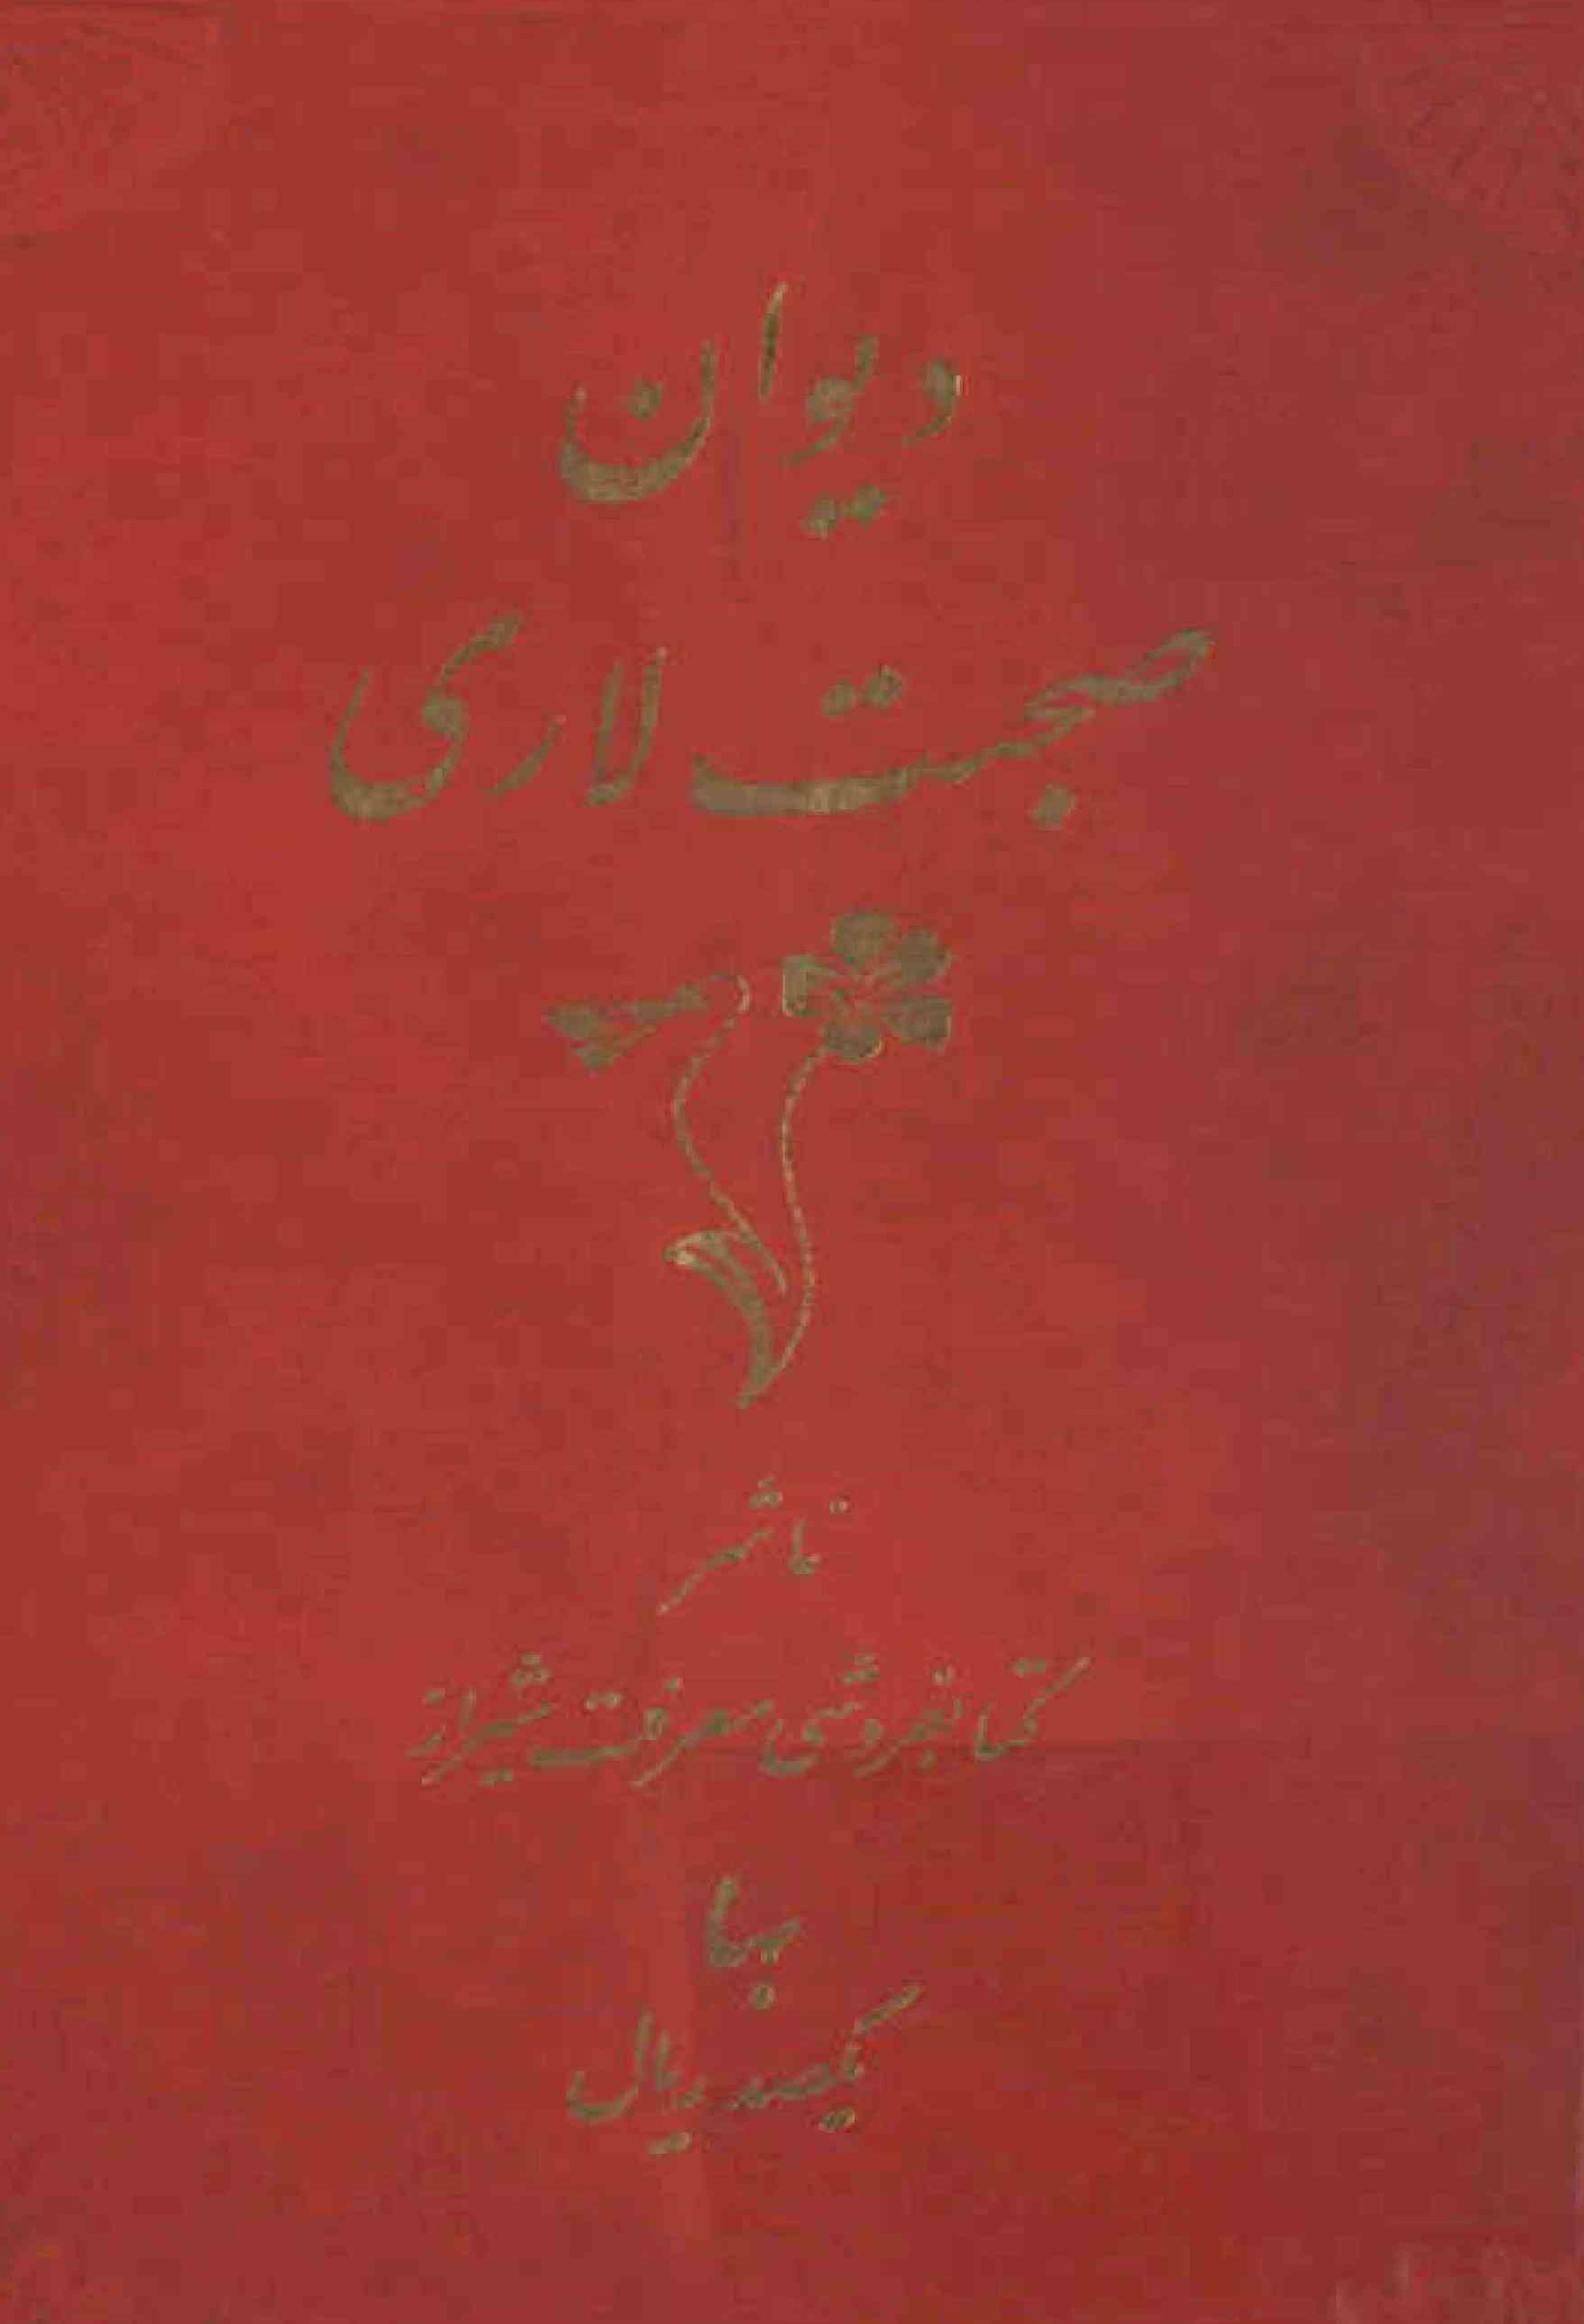 دیوان
صحبت لاری
ناشر
کتابفروشی معرفت شیراز
بها
یکصد ریال